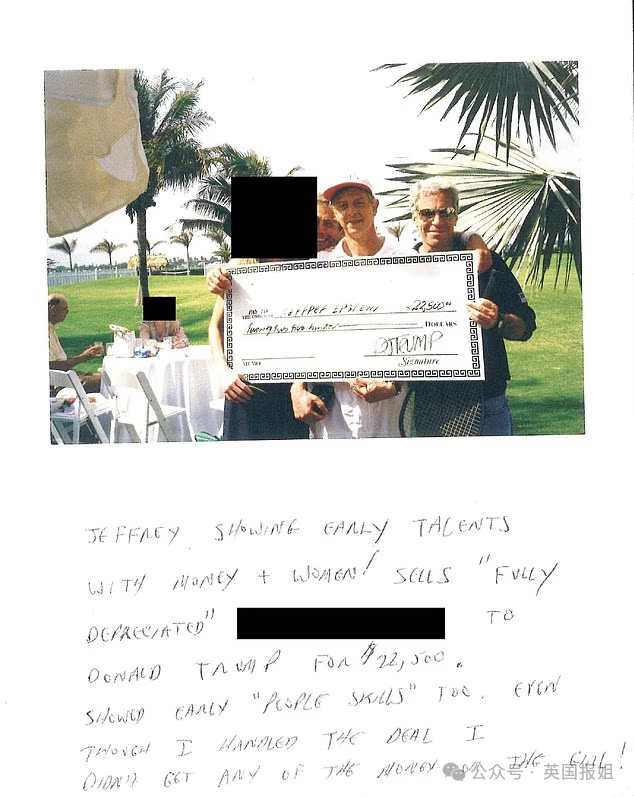 PAY TO
THE ORDER OF JEFFREY EPSTEIN $22,500⁰⁰
twenty two five hundred DOLLARS
DJTRUMP
MEMO Signature
JEFFREY SHOWING EARLY TALENTS
WITH MONEY + WOMEN! SELLS "FULLY
DEPRECIATED" TO
DONALD TRUMP FOR $22,500.
SHOWED EARLY "PEOPLE SKILLS" TOO. EVEN
THOUGH I HANDLED THE DEAL I
DIDN'T GET ANY OF THE MONEY OR THE GIRL!
公众号 · 英国报姐